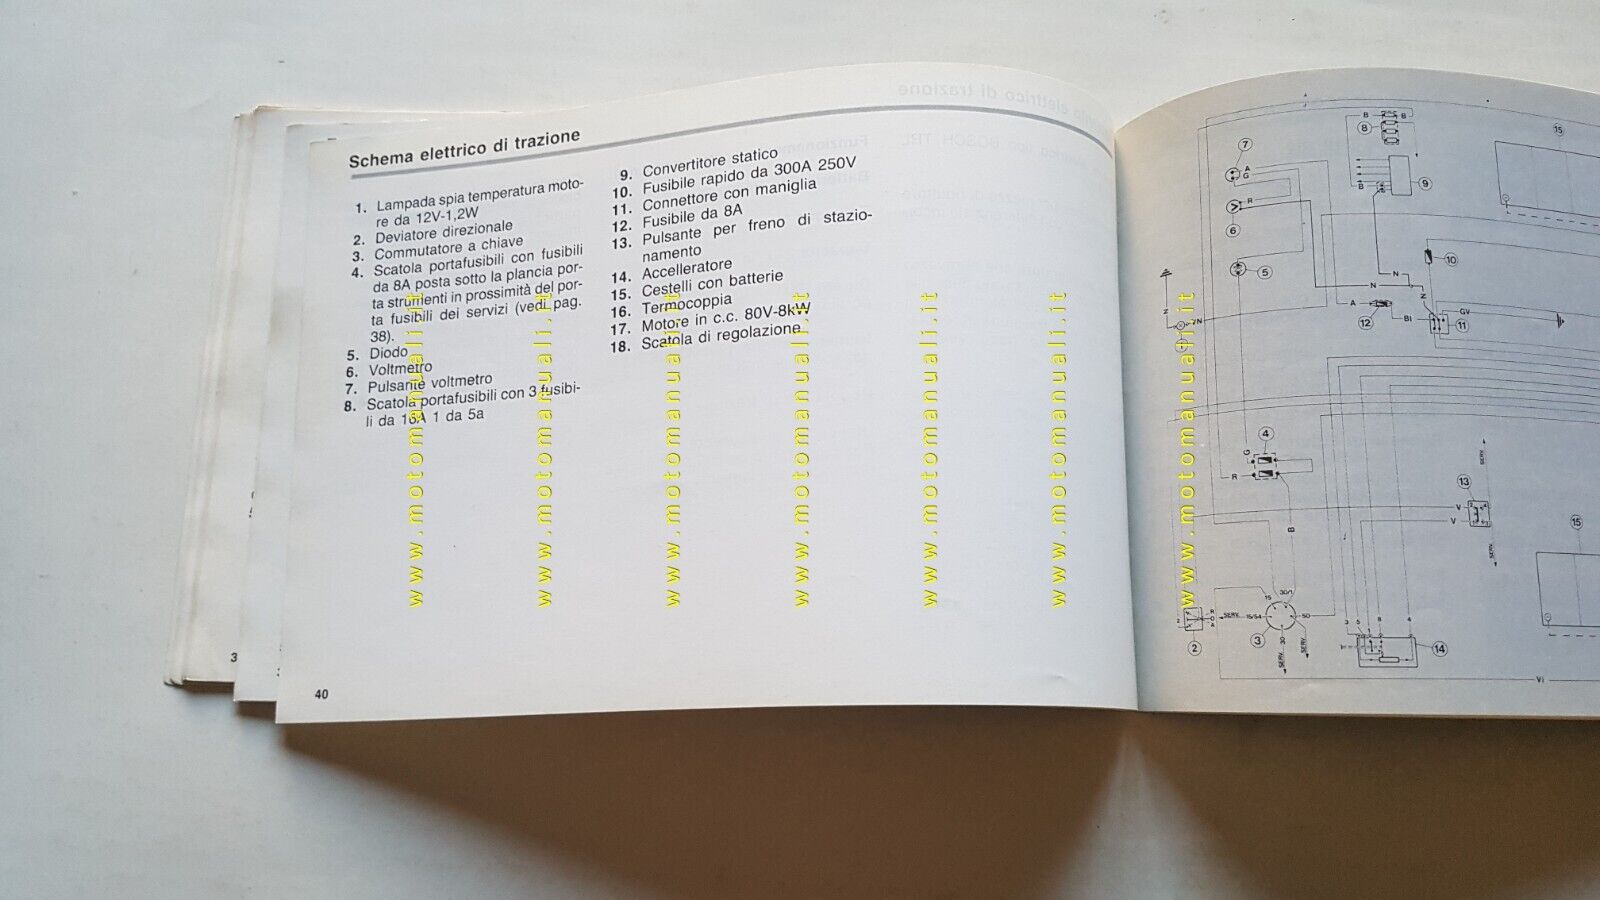 Schema elettrico di trazione
1. Lampada spia temperatura moto-
re da 12V-1,2W
2. Deviatore direzionale
3. Commutatore a chiave
4. Scatola portafusibili con fusibili
da 8A posta sotto la plancia por-
ta strumenti in prossimità del por-
ta fusibili dei servizi (vedi pag.
38).
5. Diodo
6. Voltmetro
7. Pulsante voltmetro
8. Scatola portafusibili con 3 fusibi-
li da 16A 1 da 5a
9. Convertitore statico
10. Fusibile rapido da 300A 250V
11. Connettore con maniglia
12. Fusibile da 8A
13. Pulsante per freno di stazio-
namento
14. Accelleratore
15. Cestelli con batterie
16. Termocoppia
17. Motore in c.c. 80V-8kW
18. Scatola di regolazione
40
3
www.motomanuali.it
www.motomanuali.it
www.motomanuali.it
www.motomanuali.it
www.motomanuali.it
www.motomanuali.it
www.motomanuali.it
B 8 B
15
7
A
G
B 9
R
6
5
10
N
N
Z
A
12
BI
GV
11
Z
N
4
G
R
B
13
SERV.
V
V
SERV.
15
15 30/1
R
O
A
SERV. 15/54
50
2
3
30
SERV.
SERV.
3 5 1 8 4
14
Vi